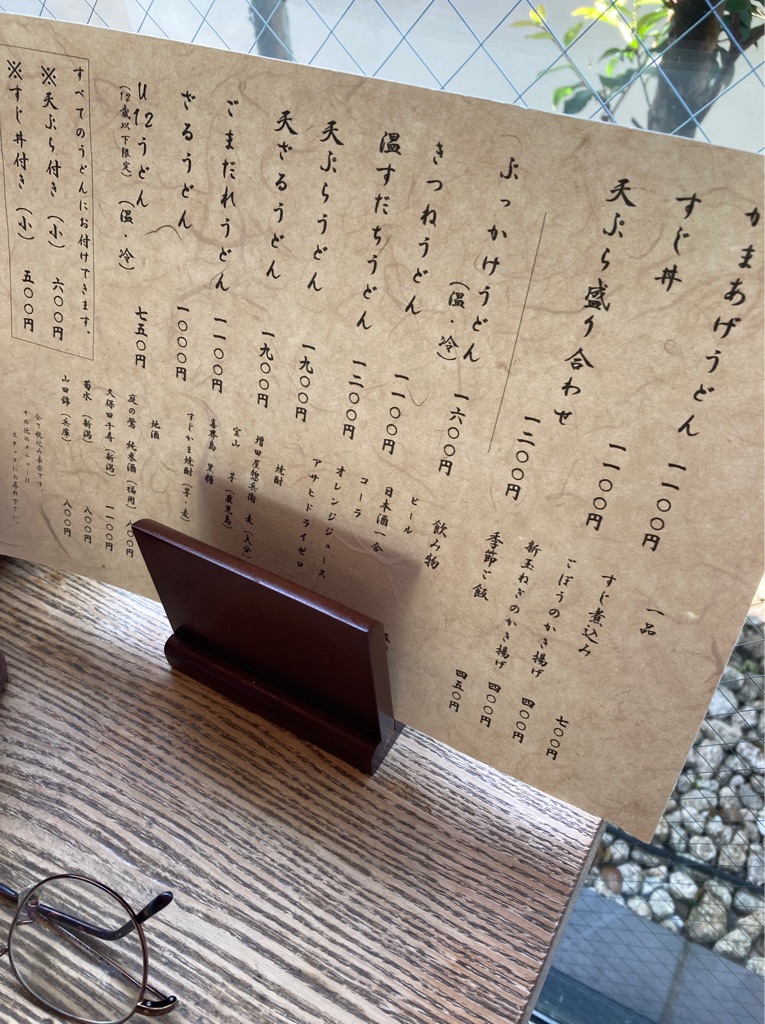 かまあげうどん 一一〇〇円
すじ丼 一一〇〇円
天ぷら盛り合わせ 一二〇〇円
ぶっかけうどん (温・冷) 一六〇〇円
きつねうどん 一一〇〇円
温すだちうどん 一二〇〇円
天ぷらうどん 一九〇〇円
天ざるうどん 一九〇〇円
ごまだれうどん 一一〇〇円
ざるうどん 一〇〇〇円
U12うどん (温・冷) 七五〇円
(12歳以下限定)
すべてのうどんにお付けできます。
※天ぷら付き (小) 六〇〇円
※すじ丼付き (小) 五〇〇円
一品
すじ煮込み 七〇〇円
ごぼうのかき揚げ 四〇〇円
新玉ねぎのかき揚げ 四〇〇円
季節ご飯 四五〇円
飲み物
ビール
日本酒一合
コーラ
オレンジジュース
アサヒドライゼロ
焼酎
増田屋惣兵衛 麦 (大分)
宝山 芋 (鹿児島)
喜界島 黒糖
すじかま焼酎 (芋・麦)
地酒
庭の鶯 純米酒 (福岡) 八〇〇円
久保田千寿 (新潟) 一一〇〇円
菊水 (新潟) 八〇〇円
山田錦 (兵庫) 八〇〇円
全て税込み表示です。
その他のメニューは
スタッフにお尋ね下さい。